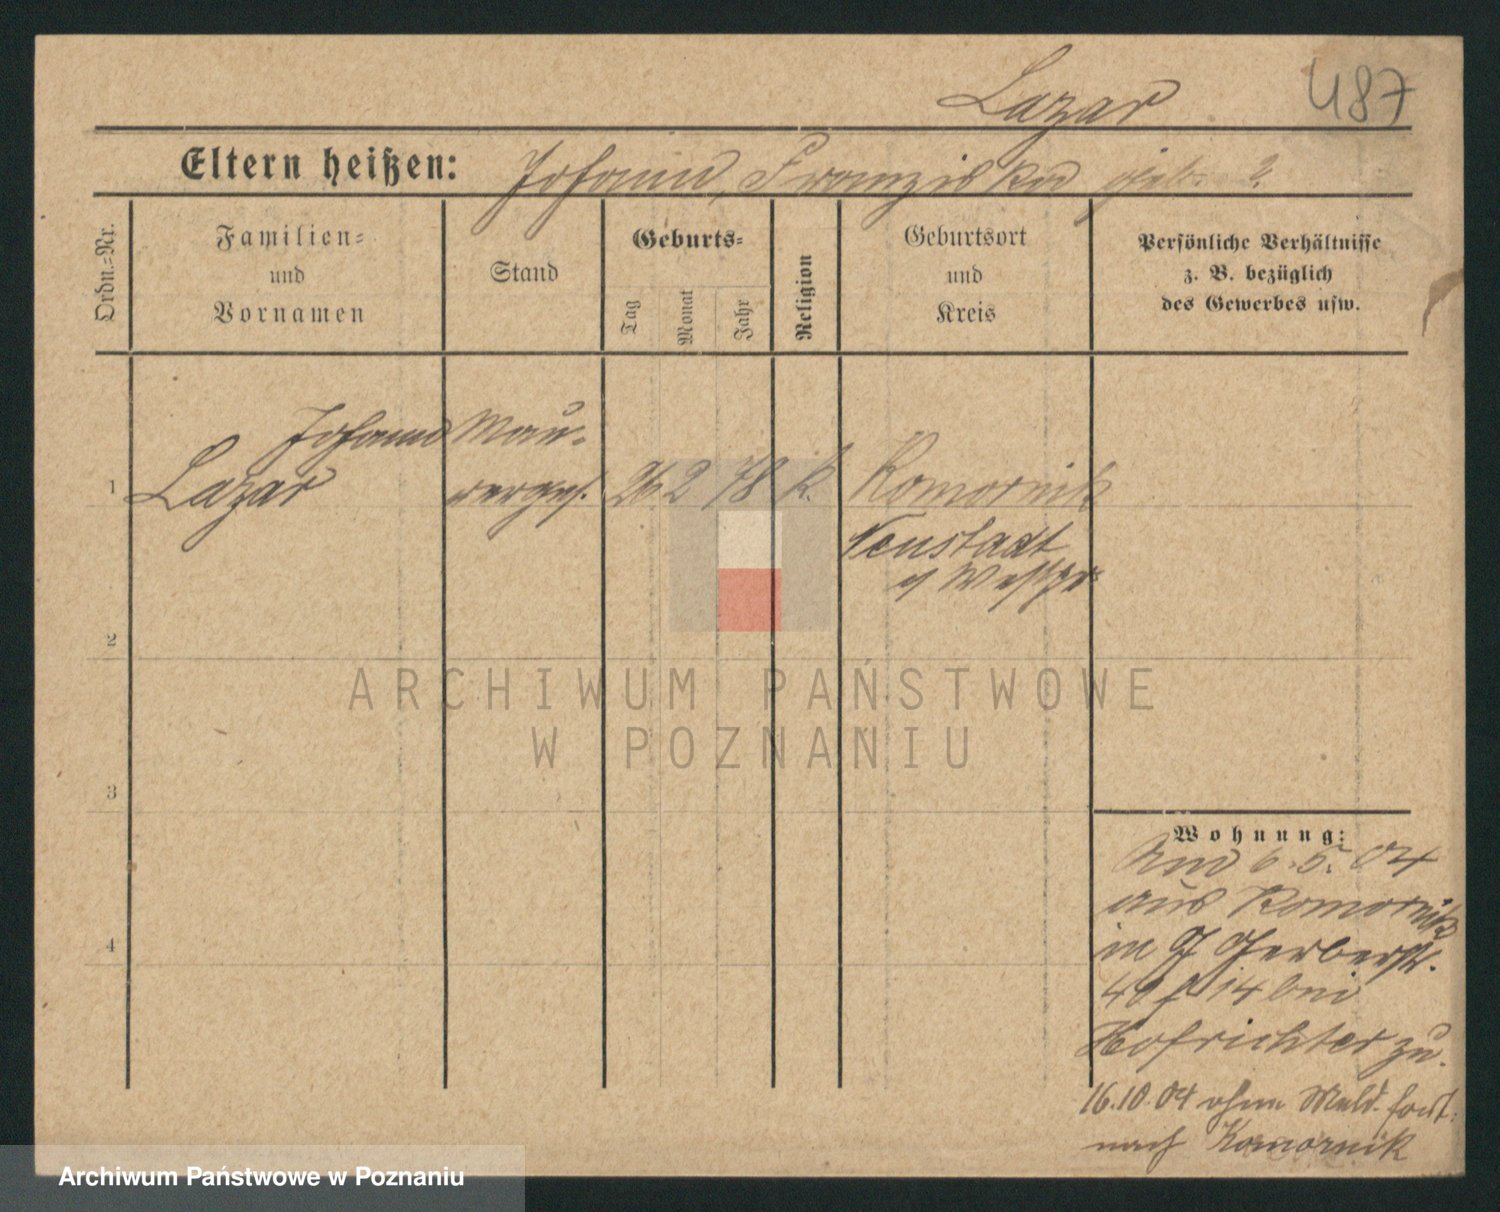 Lazar 487
Eltern heißen: Johann, Franziska geb. ?
Ordn.-Nr.
Familien-
und
Vornamen
Stand
Geburts-
Tag
Monat
Jahr
Religion
Geburtsort
und
Kreis
Persönliche Verhältnisse
z. B. bezüglich
des Gewerbes usw.
Johann Mau-
1 Lazar rerges. 26 2 78 k. Komornik
Neustadt
Westpr
2
3
4
Wohnung:
6.5.04
aus Komornik
in Gerberstr.
40 14 bei
Hofrichter zu.
16.10.04 ohne Meld. fort
nach Komornik
ARCHIWUM PAŃSTWOWE
W POZNANIU
Archiwum Państwowe w Poznaniu